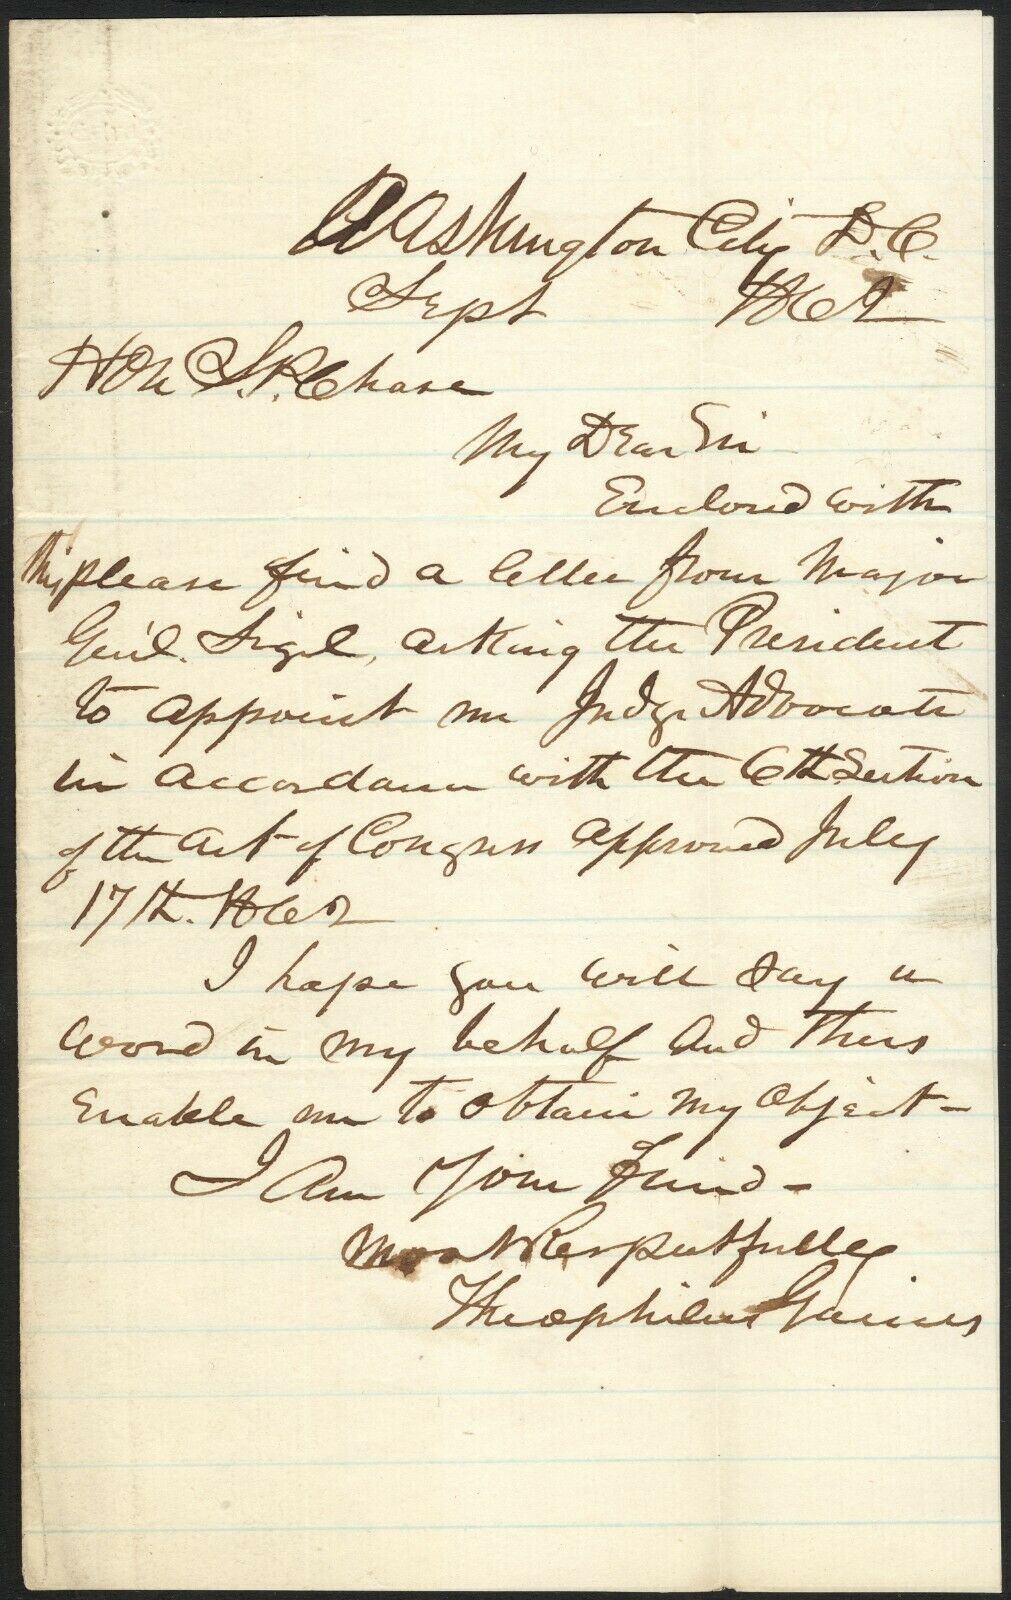 Washington City D.C.
Sept 1862
Hon S.P. Chase
My Dear Sir
Enclosed with
this please find a letter from Major
Gen'l. Sigel, asking the President
to appoint me Judge Advocate
in accordance with the 6th Section
of the Act of Congress approved July
17th. 1862
I hope you will say a
word in my behalf and thus
Enable me to obtain my object-
I Am Your friend-
Most Respectfully
Theophilus Gaines